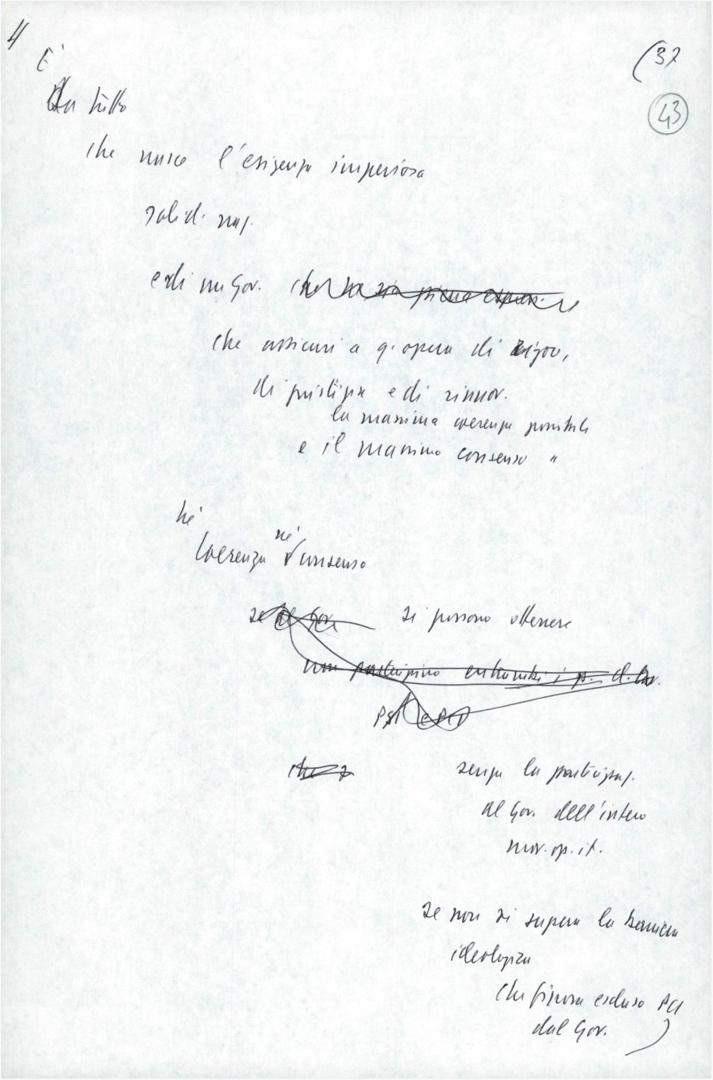 4
(37
43
È
Da tutto
che nasce l'esigenza imperiosa
e di un Gov.
che assicuri a q. opera di
di giustizia e di rinnov.
la massima coerenza possibile
e il massimo consenso "
né
Coerenza né consenso
si possono ottenere
non partecipino entrambi i p. di
PSI e PCI
senza la partecipaz.
al Gov. dell'intero
mov. op. it.
se non si supera la barriera
ideologica
che finora escluso PCI
dal Gov.